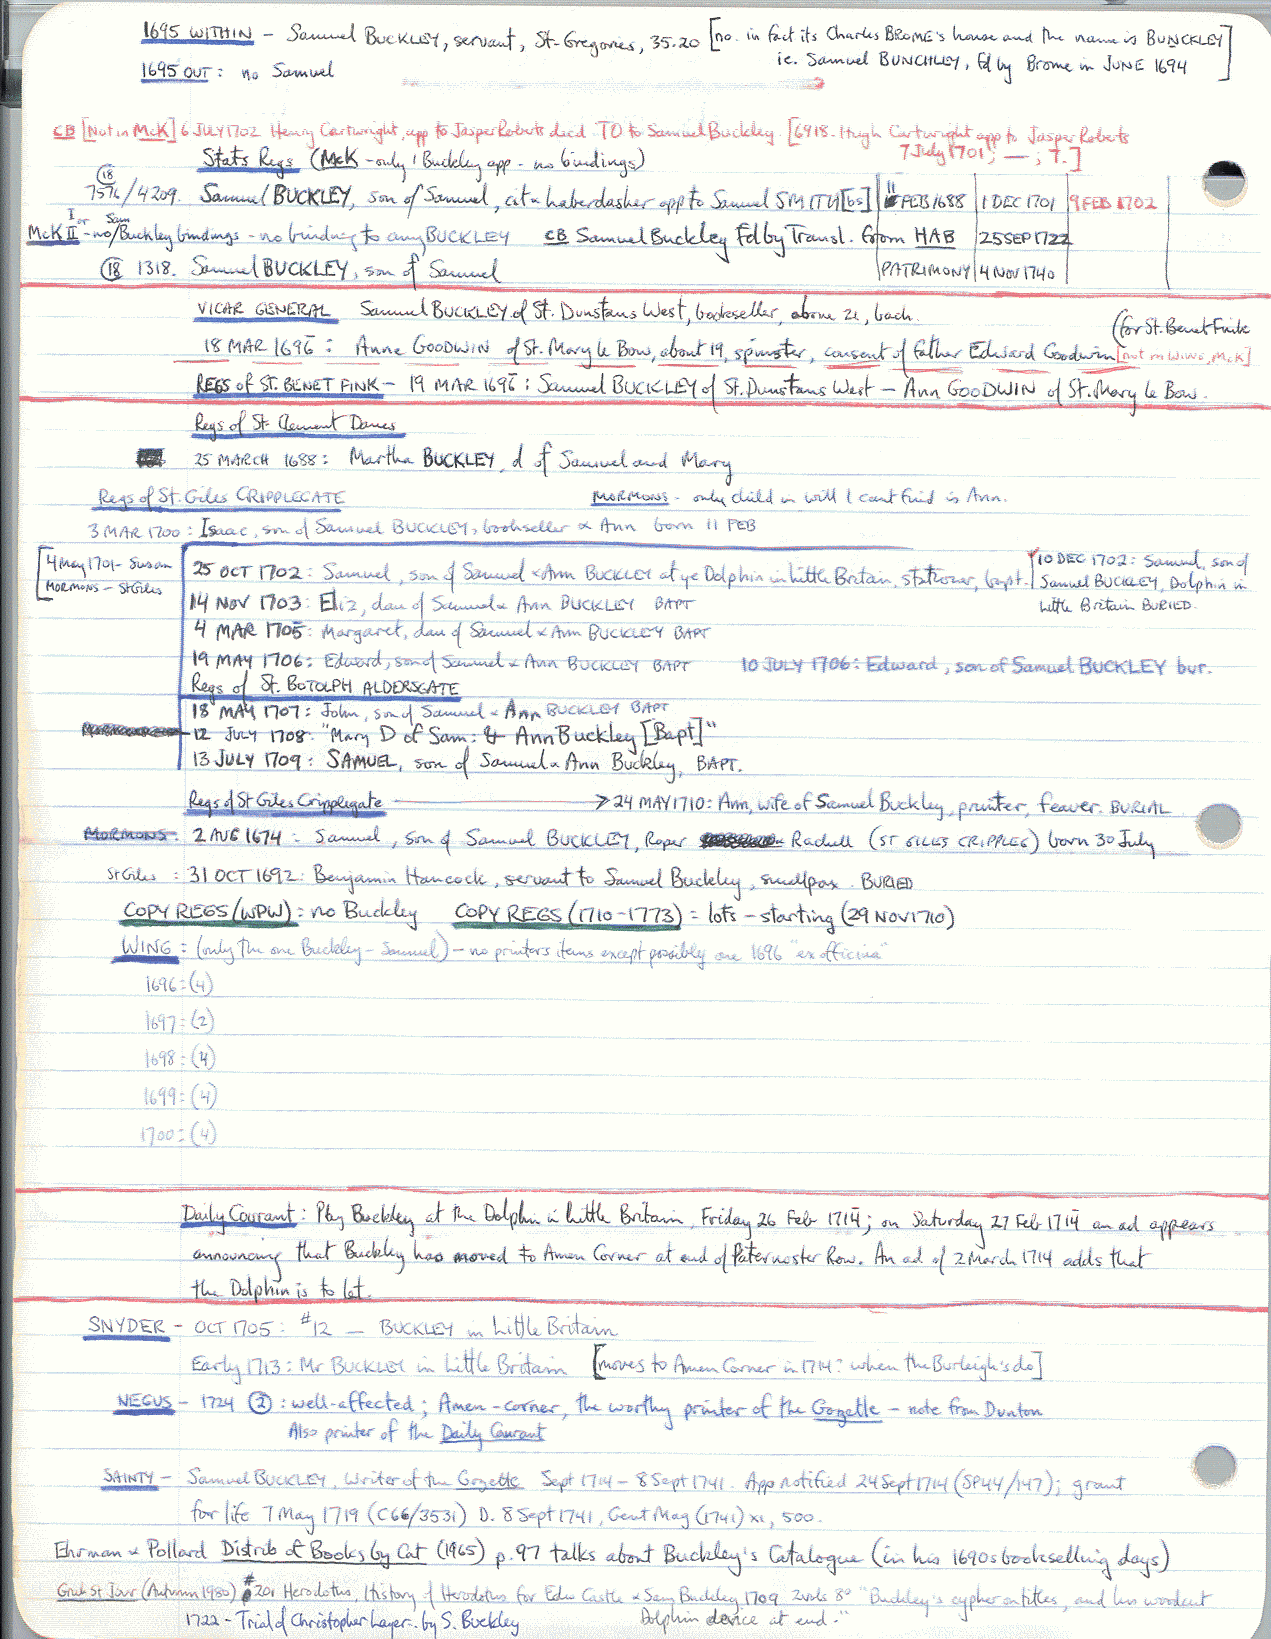 1695 WITHIN - Samuel BUCKLEY, servant, St. Gregories, 35.20 [no. in fact its Charles BROME's house and the name is BUNCKLEY
ie. Samuel BUNCHLEY, fd by Brome in JUNE 1694]
1695 OUT: no Samuel
CB [Not in McK] 6 JULY 1702 Henry Cartwright, app to Jasper Roberts decd. TO to Samuel Buckley. [6918. Hugh Cartwright app to Jasper Roberts
7 July 1701; —; 7.]
Stats Regs (McK - only 1 Buckley app - no bindings)
(18) 7576/4209. Samuel BUCKLEY, son of Samuel, cit & haberdasher app to Samuel SMITH [bs] | FEB 1688 | 1 DEC 1701 | 9 FEB 1702
McK II - no I or Sam Buckley bindings - no binding to any BUCKLEY CB Samuel Buckley Fd by Transl. from HAB | 25 SEP 1722
(18) 1318. Samuel BUCKLEY, son of Samuel | PATRIMONY | 4 NOV 1740
VICAR GENERAL Samuel BUCKLEY of St. Dunstans West, bookseller, above 21, bach.
(for St. Benet Finke
18 MAR 1696: Anne GOODWIN of St. Mary le Bow, about 19, spinster, consent of father Edward Goodwin [not in Wing, McK]
REGS of ST. BENET FINK - 19 MAR 1696: Samuel BUCKLEY of St. Dunstans West - Ann GOODWIN of St. Mary le Bow.
Regs of St. Clement Danes
25 MARCH 1688: Martha BUCKLEY, d of Samuel and Mary
Regs of St. Giles CRIPPLEGATE MORMONS - only child in will I cant find is Ann.
3 MAR 1700: Isaac, son of Samuel BUCKLEY, bookseller & Ann born 11 FEB
[4 May 1701 - Susan
MORMONS - St Giles
25 OCT 1702: Samuel, son of Samuel & Ann BUCKLEY at ye Dolphin in Little Britain, stationer, bapt.
10 DEC 1702: Samuel, son of
Samuel BUCKLEY, Dolphin in
Little Britain BURIED.
14 NOV 1703: Eliz, dau of Samuel & Ann BUCKLEY BAPT
4 MAR 1705: Margaret, dau of Samuel & Ann BUCKLEY BAPT
19 MAY 1706: Edward, son of Samuel & Ann BUCKLEY BAPT 10 JULY 1706: Edward, son of Samuel BUCKLEY bur.
Regs of St. BOTOLPH ALDERSGATE
18 MAY 1707: John, son of Samuel & Ann BUCKLEY BAPT
12 JULY 1708: "Mary D of Sam: & Ann Buckley [Bapt]"
13 JULY 1709: SAMUEL, son of Samuel & Ann Buckley, BAPT.
Regs of St Giles Cripplegate > 24 MAY 1710: Ann, wife of Samuel Buckley, printer, feaver. BURIAL
MORMONS: 2 AUG 1674: Samuel, son of Samuel BUCKLEY, Roper & Rachell (ST GILES CRIPPLEG) born 30 July
St Giles: 31 OCT 1692: Benjamin Hancock, servant to Samuel Buckley, smallpox. BURIED
COPY REGS (WPW): no Buckley COPY REGS (1710-1773) = lots - starting (29 NOV 1710)
WING: (only the one Buckley - Samuel) - no printers items except possibly one 1696 "ex officina"
1696: (4)
1697: (2)
1698: (4)
1699: (4)
1700: (4)
Daily Courant: Pbg Buckley at the Dolphin in Little Britain, Friday 26 Feb 1714; on Saturday 27 Feb 1714 an ad appears
announcing that Buckley has moved to Amen Corner at end of Paternoster Row. An ad of 2 March 1714 adds that
the Dolphin is to let.
SNYDER - OCT 1705: #12 - BUCKLEY in Little Britain
Early 1713: Mr BUCKLEY in Little Britain [moves to Amen Corner in 1714? when the Burleigh's do]
NEGUS - 1724 (2): well-affected; Amen-corner, the worthy printer of the Gazette - note from Dunton
Also printer of the Daily Courant
SAINTY - Samuel BUCKLEY, Writer of the Gazette Sept 1714 - 8 Sept 1741. App notified 24 Sept 1714 (SP44/147); grant
for life 7 May 1719 (C66/3531) D. 8 Sept 1741, Gent Mag (1741) xi, 500.
Ehrman & Pollard Distrib of Books by Cat (1965) p.97 talks about Buckley's Catalogue (in his 1690s bookselling days)
Grub St Jour (Autumn 1980) #201 Herodotus, History of Herodotus for Edw Castle & Sam Buckley, 1709 2 vols 8o "Buckley's cypher on titles, and his woodcut
Dolphin device at end."
1722 - Trial of Christopher Layer.. by S. Buckley